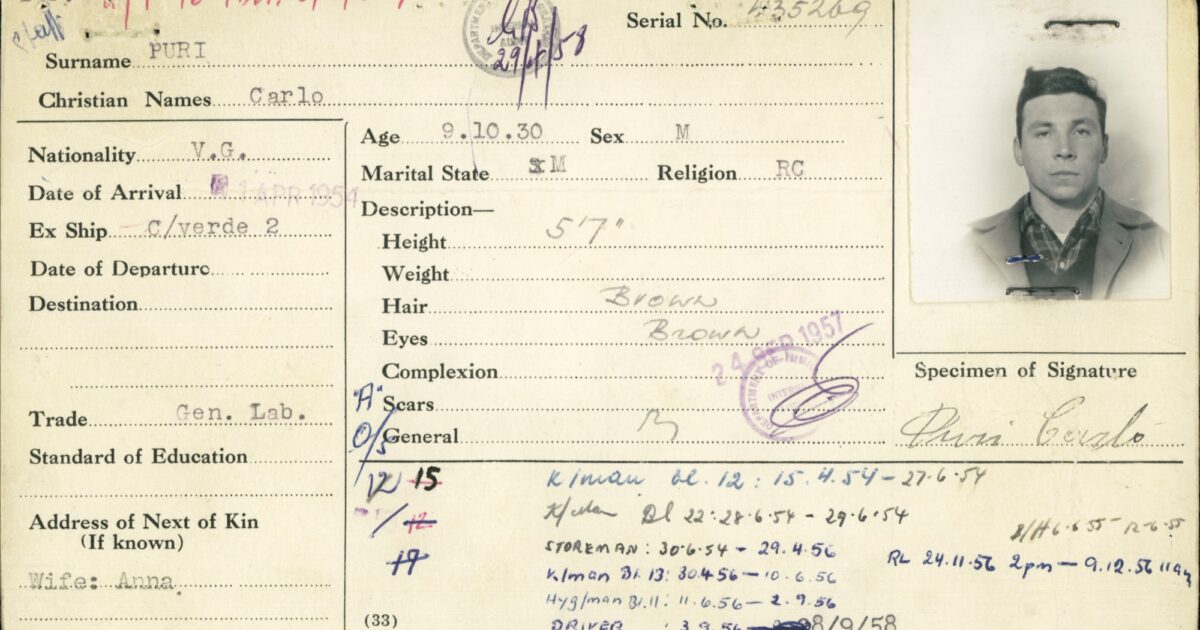 Serial No. 435269
29/4/58
Surname PURI
Christian Names Carlo
Nationality V.G.
Date of Arrival 1 APR 1954
Ex Ship C/verde 2
Date of Departure
Destination
Trade Gen. Lab.
Standard of Education
Address of Next of Kin
(If known)
Wife: Anna
Age 9.10.30 Sex M
Marital State M Religion RC
Description—
Height 5'7"
Weight
Hair Brown
Eyes Brown
Complexion
24 SEP 1957
"A" Scars
O/S General
Specimen of Signature
Puri Carlo
12 15 K/man bl. 12: 15.4.54 – 27.6.54
12 Bl 22: 28.6.54 – 29.6.54
B/H 6.6.55 – 12.6.55
17 STOREMAN: 30.6.54 – 29.4.56
RL 24.11.56 2pm – 9.12.56 11am
K/man Bl. 13: 30.4.56 – 10.6.56
Hyg/man Bl. 11: 11.6.56 – 2.9.56
(33) DRIVER : 3.9.56 – 8/9/58